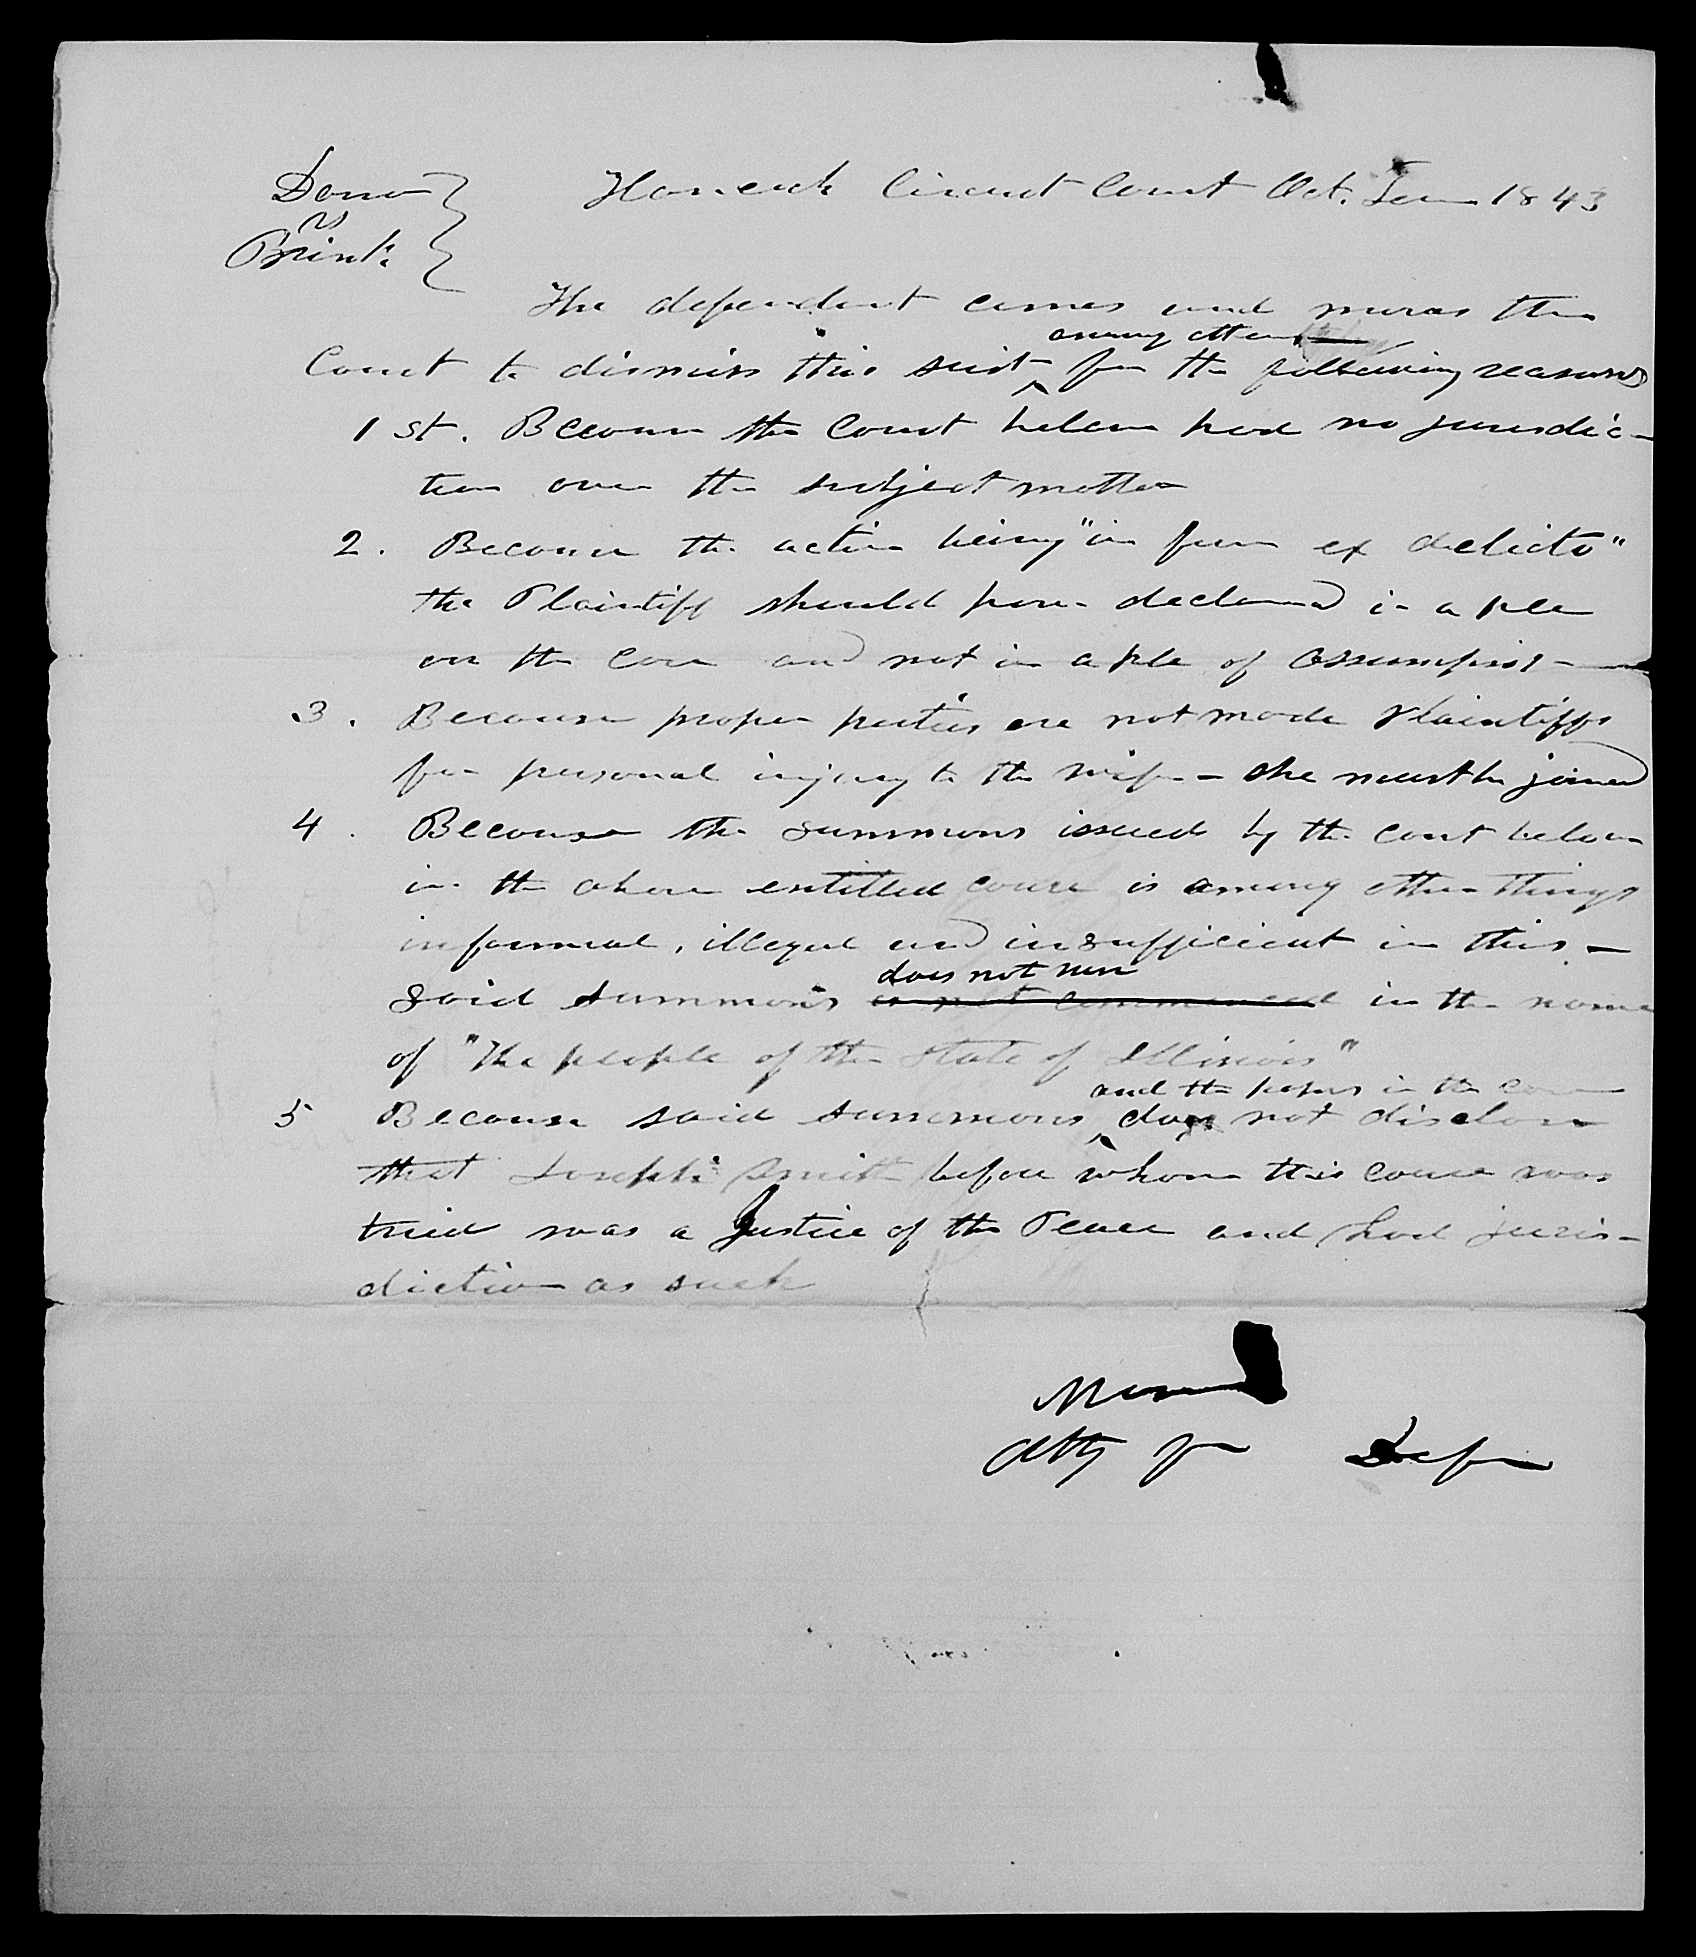 Dana
vs
Brink.
Hancock Circuit Court Oct. Term 1843
The defendant comes and moves the
among others
Court to dismiss this suit ^ for the following reasons
1st. Because the Court below had no jurisdic-
tion over the subject matter
2. Because the action being "in form ex delicto"
the Plaintiff should have declared in a plea
on the case and not in a plea of assumpsit -
3. Because proper parties are not made Plaintiffs
for personal injury to the wife - she must be joined
4. Because the summons issued by the court below
in the above entitled cause is among other things
informal, illegal and insufficient in this -
does not run
said summons is not commenced in the name
of "The people of the State of Illinois"
and the papers in the case
5 Because said summons ^ does not disclose
that Joseph Smith before whom this cause was
tried was a Justice of the Peace and had juris-
diction as such
Atty for Deft